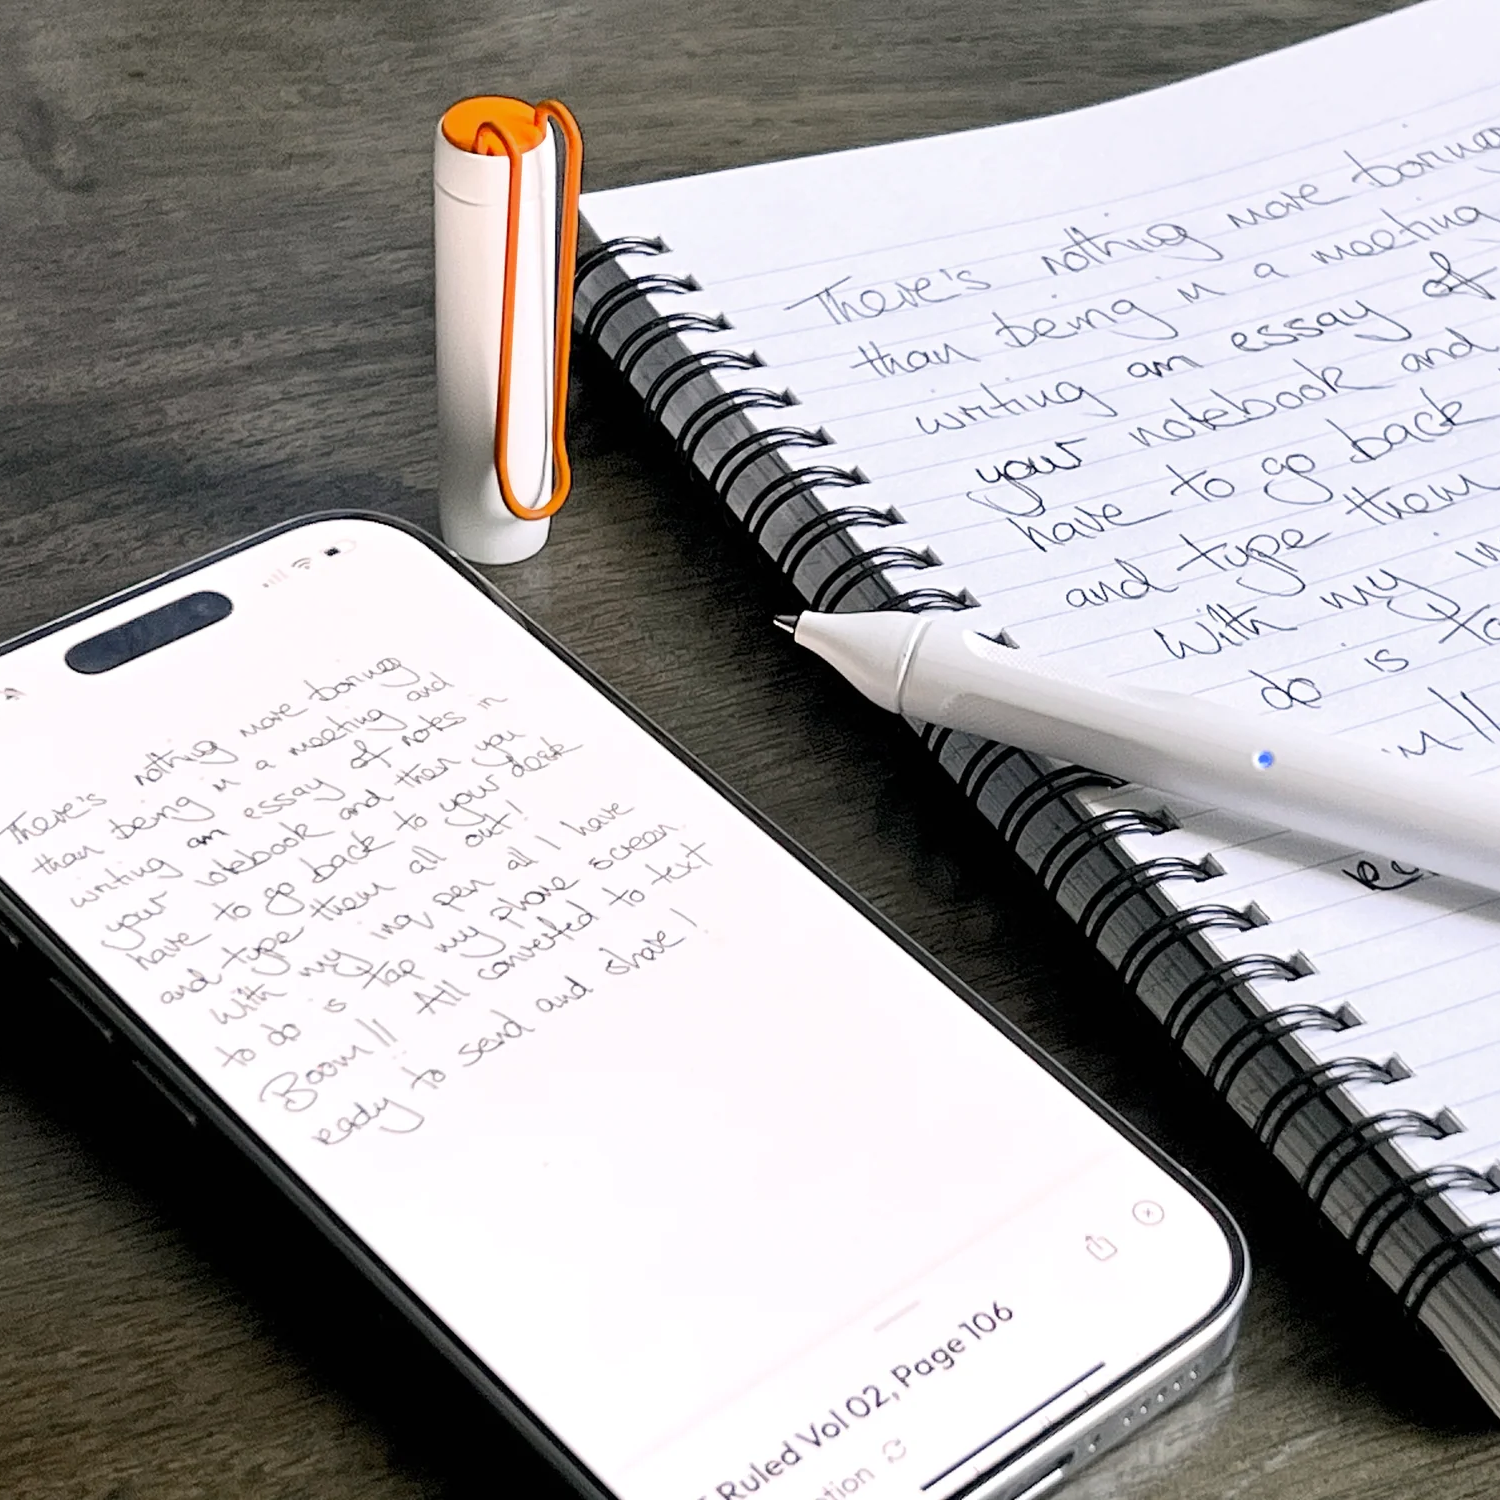 There's nothing more boring
than being in a meeting and
writing an essay of notes in
your notebook and then you
have to go back to your desk
and type them all out!
With my inq pen all I have
to do is tap my phone screen.
Boom!! All converted to text
ready to send and share!
Ruled Vol 02, Page 106
There's nothing more boring
than being in a meeting
writing an essay of
your notebook and
have to go back
and type them
With my in
do is ta
m!!